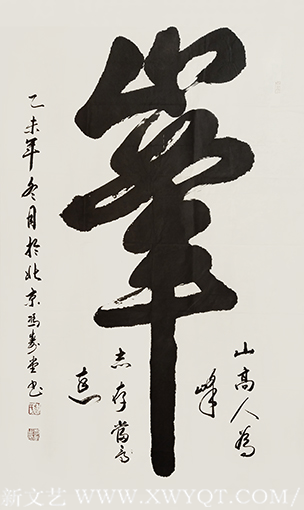 峯
山高人為
峰
志存當高
遠
乙未年冬月於北京馮堂书
新文艺 WWW.XWYQT.COM